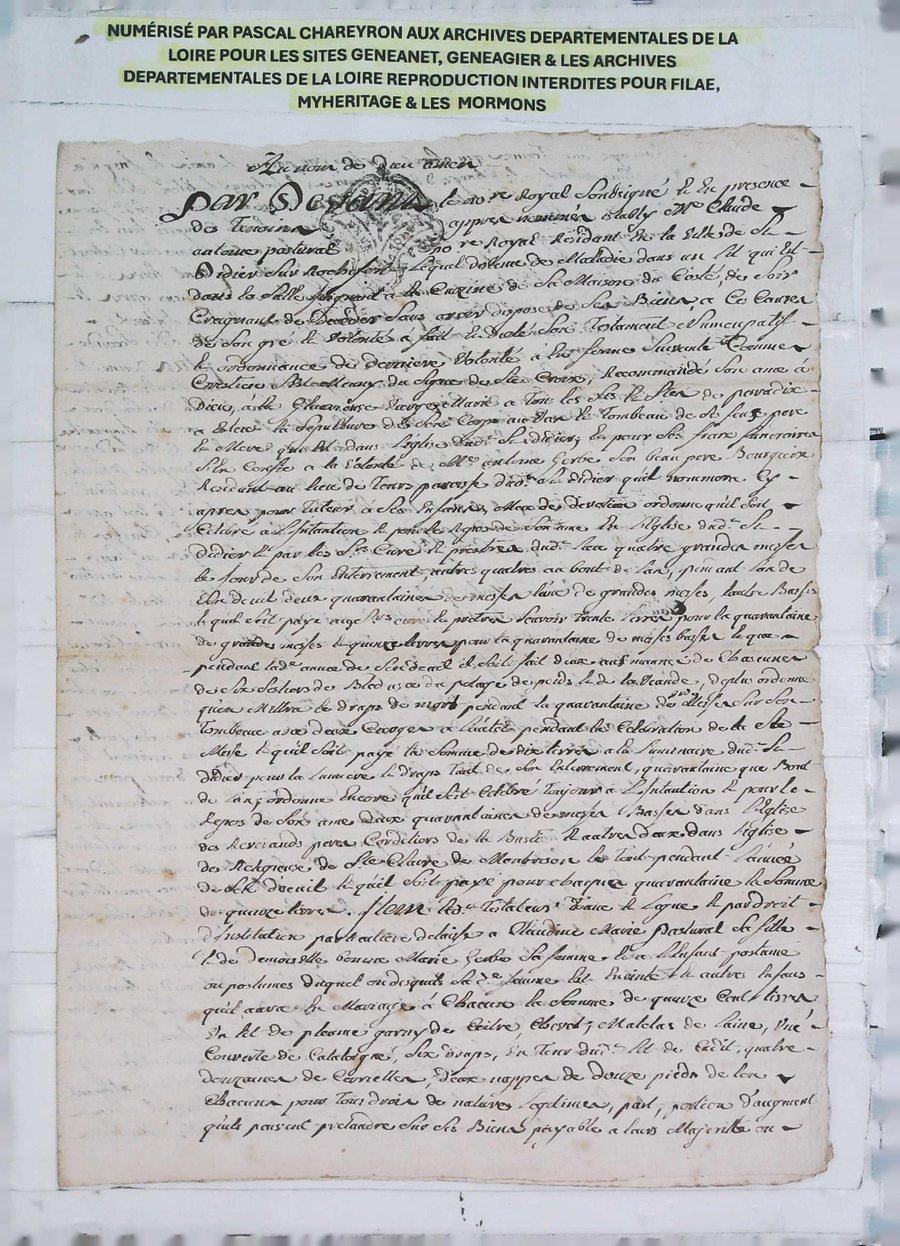 NUMÉRISÉ PAR PASCAL CHAREYRON AUX ARCHIVES DEPARTEMENTALES DE LA
LOIRE POUR LES SITES GENEANET, GENEAGIER & LES ARCHIVES
DEPARTEMENTALES DE LA LOIRE REPRODUCTION INTERDITES POUR FILAE,
MYHERITAGE & LES MORMONS
Au nom de dieu amen
Par Devant le no re Royal Soubsigné Et En presence
des Temoins appres nommés Estably Me Claude
antoine pastural no re Royal Residant En la Ville de St
Didier Sur Rochefort, Lequel detenu de Maladie dans un lit qui Est
dans la Salle joignant a la Cuizine de Sa Maison du Costé de Soir
Craignant de Deceder Sans avoir disposé de Ses Biens, a Ces Causes
de Son gré Et Volonté a fait Et Son Testament Numcupatif
Et ordonnance de derniere Volonté a En forme Suivante Comme
Crestien du Signe de Ste Croix, Recommandé Son ame à
Dieu, à la Glorieuse Vierge Marie a Tous les Sts Et Stes de paradis
a Esleu la Sepulture de Son Corps au Tombeau de Ses feus pere
Et Mere qui Est dans l'Eglise dud. St didier, Et pour Ses frais funeraires
S'En Confie a la Volonté de Me antoine Gerbe Son beau pere Bourgeois
Residant au lieu de paroisse dud. St didier qu'il nommera Cy
apres pour Tuteur à Ses Enfans, de devotion ordonne qu'il Soit
Celebré a l'Intantion Et pour le Repos de Son ame En l'Eglise dud. St
Didier Et par les Srs Curé Et prestres dud. lieu quatre grandes messes
le jour de Son Enterrement, autres quatres au bout de l'an, pendant l'an de
Son deuil deux quarantaines de messes l'une de grandes messes, l'autre Basses
Et quil Soit payé auxd. Srs curé Et prêtres scavoir trente livres pour la quarantaine
de grandes messes Et quinze livres pour la quarantaine de messes basses Et que
pendant lad. année de Son deuil il Soit fait deux aumones de Chacune
de Six Sestiers de Bled du potage de poids Et de la Viande, de plus ordonne
le drap de mort pendant la quarantaine de Messes Sur Son
Tombeau avec deux Cierges a l'autel pendant la Celebration de la Ste
Messe Et qu'il Soit payé la Somme de dix livres a la Luminaire dud. St
Didier pour la Lumiere Et draps Tant de Son Enterrement, quarantaine que Bout
de l'an, ordonne Encore qu'il Soit Celebré Toujour a l'Intantion Et pour le
Repos de Son ame deux quarantaines de messes Basses dans l'Eglise
des Reverands peres Cordeliers de la Bastie Et autres deux dans l'Eglise
des Religieuses de Ste Claire de Monbrison le Tout pendant l'année
de Son deuil Et qu'il Soit payé pour chaque quarantaine la Somme
de quinze livres. Item led. Testateur Donne Et Legue Et par droit
d'Institution particuliere delaisse a Claudine Marie Pastural Sa fille
Et de demoiselle Marie Gerbe Sa femme Et a l'Enfant postume
ou postumes duquel ou desquels Sad. femme Est Enceinte Et autres Enfans
qu'il aura En Mariage à Chacun la Somme de quinze Cent livres
Un lit de plume garny de Coitre, Chevet, Matelas de laine, Une
Couverte de Catalogne, Six draps, Un Tour dud. lit de Cadit, quatre
douzaines de Serviettes, deux nappes de douze pieds de long
Chacune pour Tous droits de nature, Legitimes, part, portion d'augment
qu'ils peuvent pretandre Sur Ses Biens payable a leurs Majorité ou